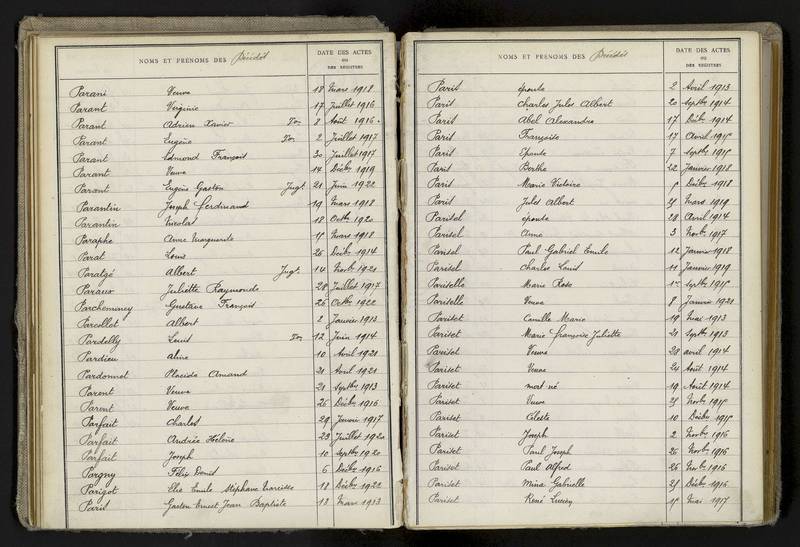 NOMS ET PRÉNOMS DES Décédés
DATE DES ACTES
OU
DES REGISTRES
Parani Veuve 18 Mars 1918
Parant Virginie 17 Juillet 1916
Parant Adrien Xavier Ton 8 Août 1916
Parant Eugène Ton 2 Juillet 1917
Parant Edmond François 30 Juillet 1917
Parant Veuve 14 Décbr 1919
Parant Eugène Gaston Jugt 21 Juin 1922
Parantin Joseph Ferdinand 19 Mars 1918
Parantin Nicolas 18 Octbr 1920
Paraphe Anne Marguerite Mars 1918
Parat Louis 26 Décbr 1914
Paratgé Albert Jugt 14 Novbr 1921
Paraux Juliette Raymonde 28 Juillet 1917
Parcheminey Gustave François 26 Octbr 1922
Parcollet Albert 2 Janvier 1913
Pardelly Louis Ton 12 Juin 1914
Pardieu Aline 10 Avril 1921
Pardonnet Placide Amand 21 Avril 1921
Parent Veuve 21 Septbre 1913
Parent Veuve 26 Décbr 1916
Parfait Charles 29 Janvier 1917
Parfait Andrée Hélène 23 Juillet 1920
Parfait Joseph 10 Septbre 1920
Pargny Félix Denis 6 Décbr 1916
Parigot Elie Emile Stéphane Narcisse 18 Décbr 1922
Paris Gaston Ernest Jean Baptiste 13 Mars 1913
NOMS ET PRÉNOMS DES Décédés
DATE DES ACTES
OU
DES REGISTRES
Paris épouse 2 Avril 1913
Paris Charles Jules Albert 20 Septbr 1914
Paris Abel Alexandre 17 Décbr 1914
Paris Françoise 17 Avril 1915
Paris Epouse 7 Septbr 1915
Paris Berthe 22 Janvier 1918
Paris Marie Victoire 5 Décbr 1918
Paris Jules Albert 25 Mars 1919
Parisel épouse 28 Avril 1914
Parisel Anne 3 Novbr 1917
Parisel Paul Gabriel Emile 12 Janvier 1918
Parisel Charles Louis 11 Janvier 1919
Pariselle Marie Rose 1er Septbr 1915
Pariselle Veuve 8 Janvier 1921
Pariset Camille Marie 19 Mai 1913
Pariset Marie Françoise Juliette 21 Septbr 1913
Pariset Veuve 28 avril 1914
Pariset Veuve 24 Août 1914
Pariset mort né 19 Août 1914
Pariset Veuve 25 Novbr 1915
Pariset Céleste 10 Décbr 1915
Pariset Joseph 2 Novbr 1916
Pariset Paul Joseph 26 Novbr 1916
Pariset Paul Alfred 26 Novbr 1916
Pariset Mina Gabrielle 25 Décbr 1916
Pariset René Lucien 15 Mai 1917